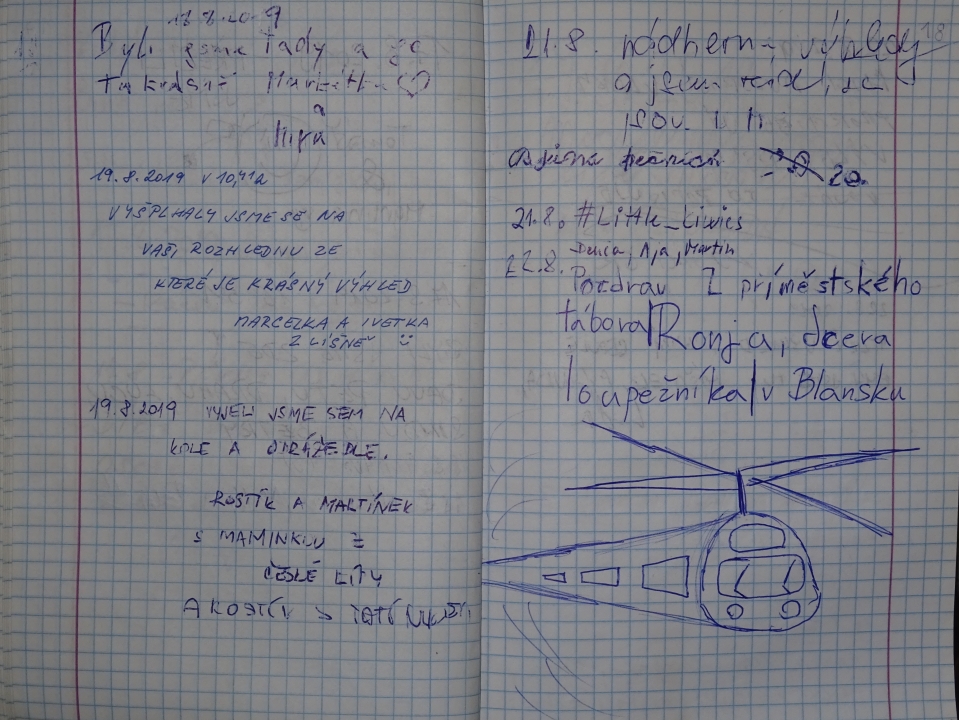 18.8.2019
Byli jsme tady a je
tu krásně Markétka
a
Míra
19.8.2019 v 10,41
VYŠPLHALY JSME SE NA
VAŠI ROZHLEDNU ZE
KTERÉ JE KRÁSNÝ VÝHLED
MARCELKA A IVETKA
Z LÍŠNĚ
19.8.2019 VYJELI JSME SEM NA
KOLE A ODRÁŽEDLE.
ROSTÍK A MARTÍNEK
S MAMINKOU Z
ČESKÉ LÍPY
A ROSTÍK S TATÍNKEM
18
21.8. nádherné výhledy
a jsem rád, že
jsou i
21.8. #Little_kiwies
Denča, Ája, Martin
22.8. Pozdrav Z příměstského
tábora Ronja, dcera
loupežníka v Blansku